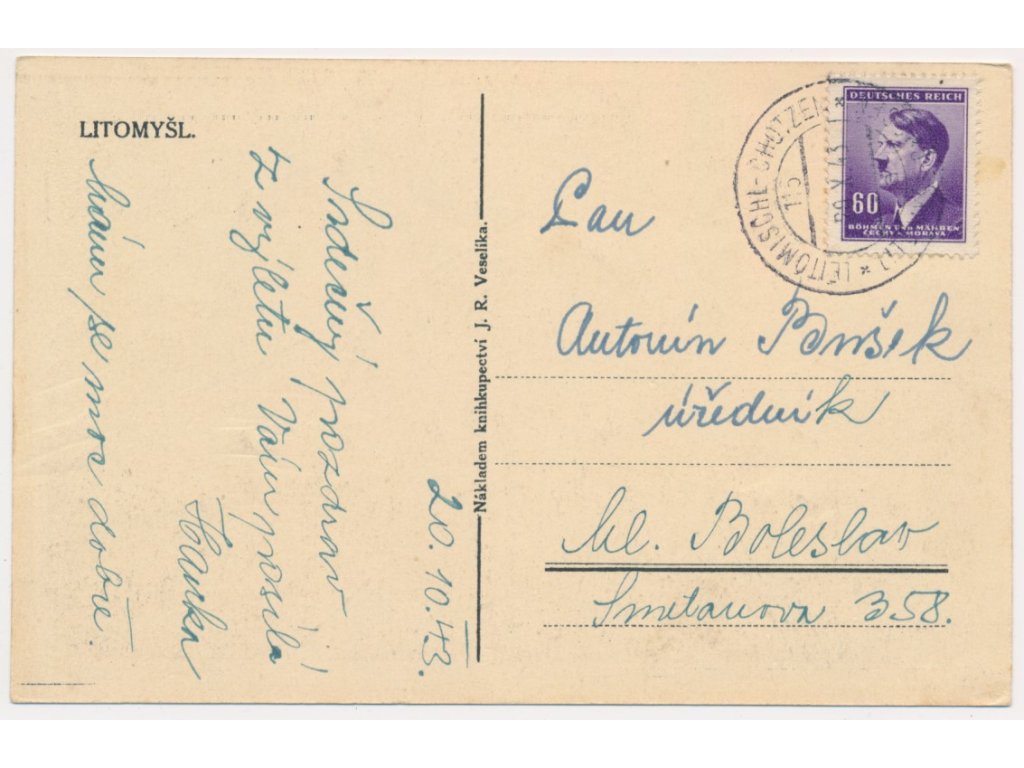 LITOMYŠL.
Srdečný pozdrav
z výletu Vám posílá
Hanka
20. 10. 43.
mám se moc dobře.
Nákladem knihkupectví J. R. Veselíka.
LEITOMISCHL-CHOTZEN
115
X 43
DEUTSCHES REICH
60
BÖHMEN UND MÄHREN
ČECHY A MORAVA
Pan
Antonín Bušek
úředník
Ml. Boleslav
Smetanova 358.